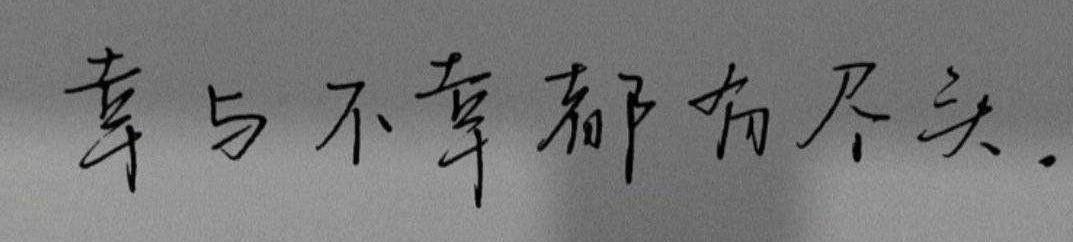 幸与不幸都有尽头.